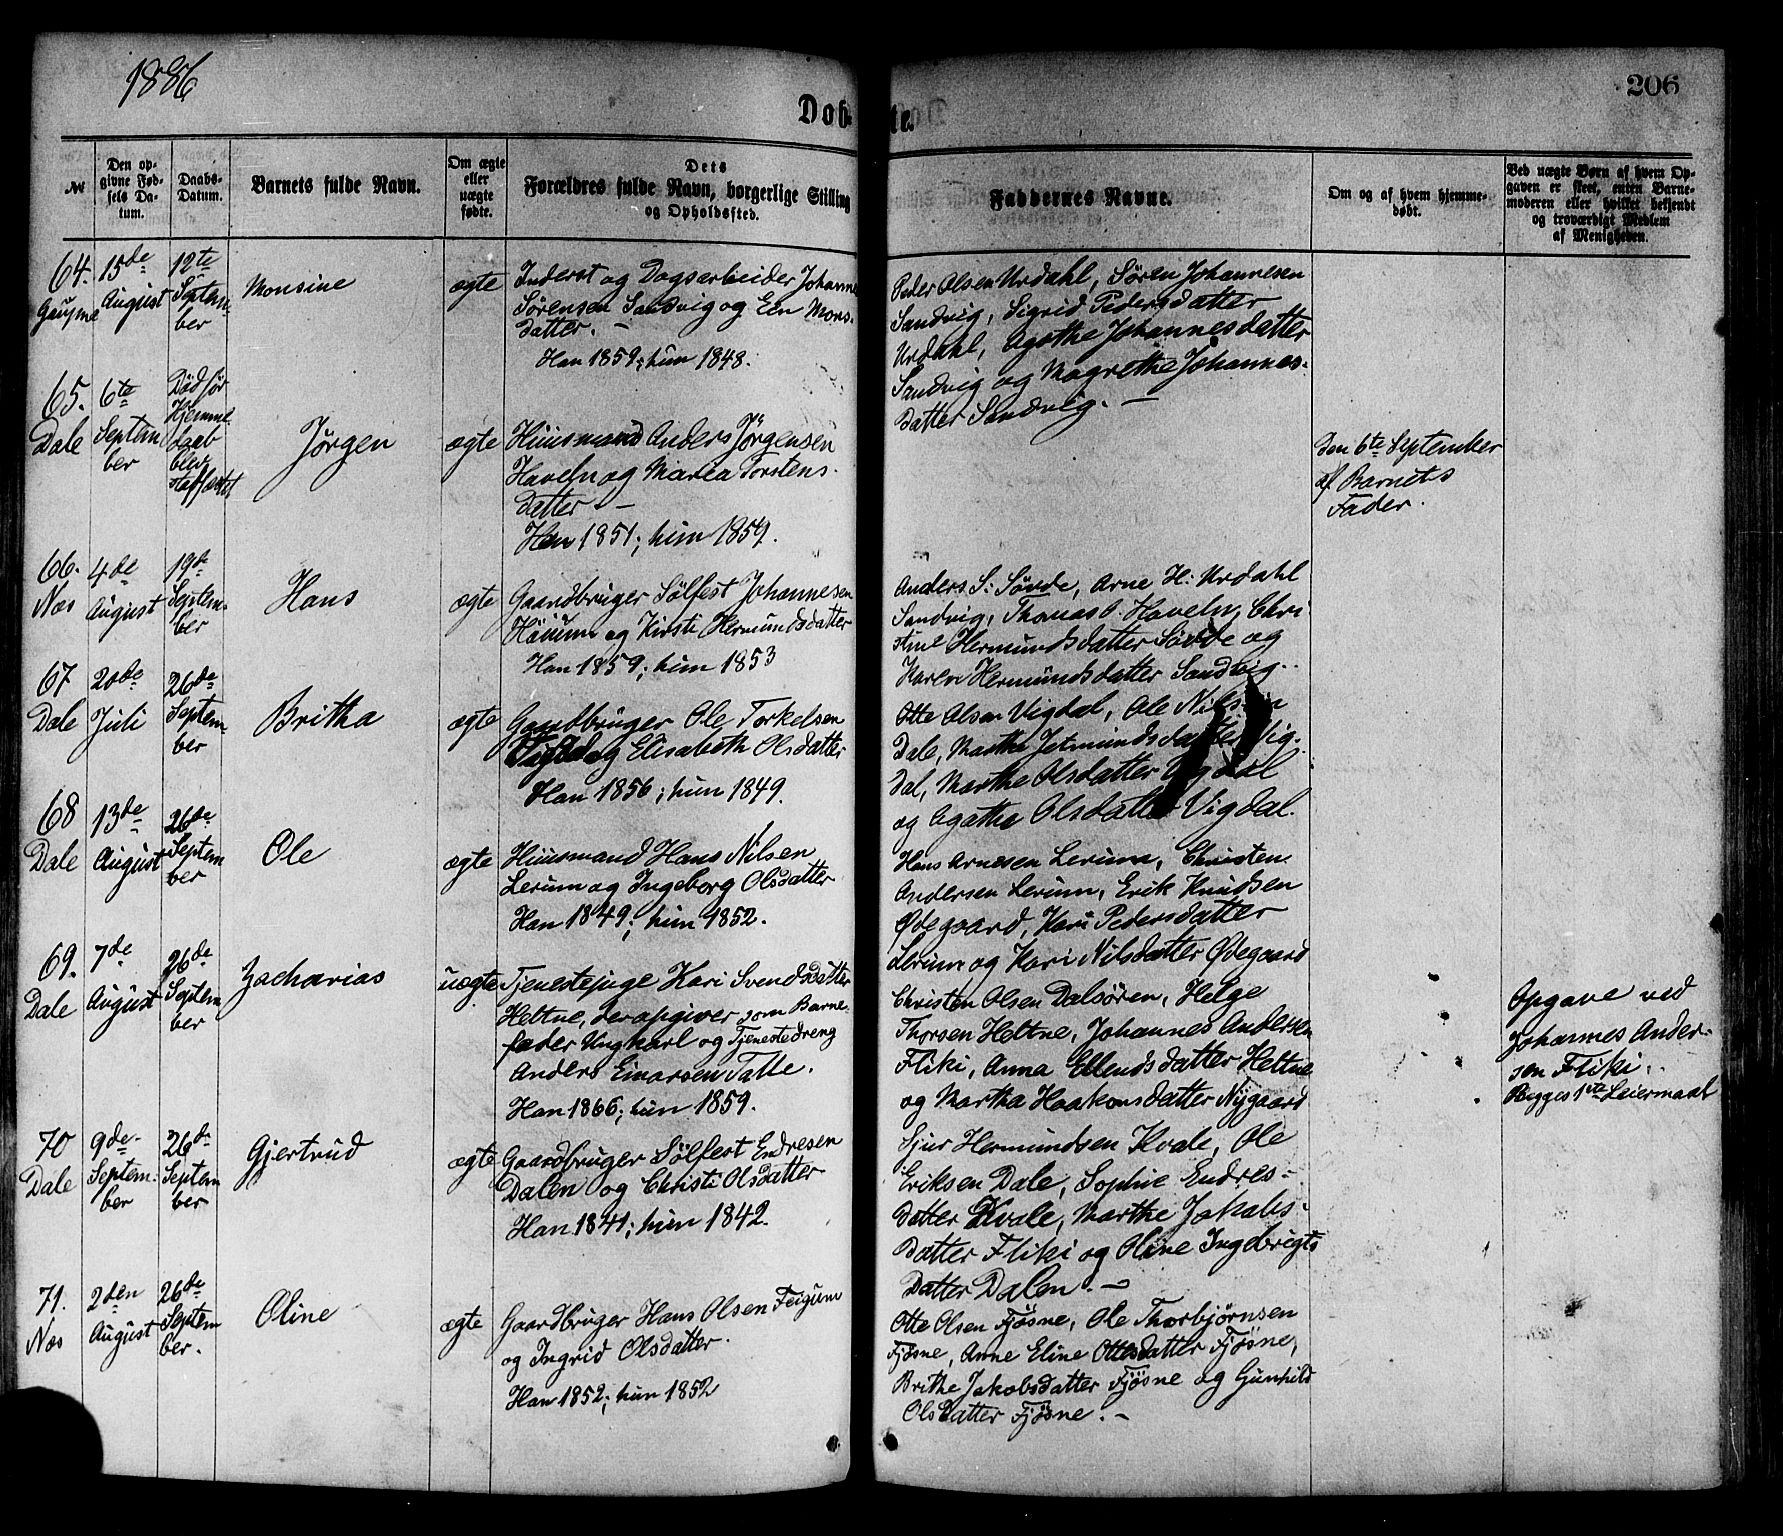 1886
206
Dobte.
№
Den opgivne Fødsels Datum.
Daabs-Datum.
Barnets fulde Navn.
Om ægte eller uægte fødte.
Dets Forældres fulde Navn, borgerlige Stilling og Opholdssted.
Faddernes Navne.
Om og af hvem hjemmedøbt.
Ved uægte Børn af hvem Opgaven er skeet, enten Barnemoderen eller hvilket bekjendt og troværdigt Medlem af Menigheden.
64. Gaupne
15de August
12te September
Monsine
ægte
Inderst og Dagsarbeider Johannes
Sørensen Sandvig og Eli Mons-
datter. –
Han 1859; hun 1848.
Peder Olsen Urdahl, Søren Johannesen
Sandvig, Sigrid Pedersdatter
Urdahl, Agathe Johannesdatter
Sandvig og Magrethe Johannes-
datter Sandvig. –
65. Dale
6te September
Død før
Hjemme
daab
blev
stadfæstet
Jørgen
ægte
Huusmand Anders Jörgensen
Haveln og Maria Torstens-
datter –
Han 1851; hun 1859.
Den 6te September
af Barnets
Fader.
66. Nes
4de August
19de September
Hans
ægte
Gaardbruger Sölfest Johannesen
Höium og Kirsti Hermundsdatter
Han 1859; hun 1853
Anders S. Søvde, Arne H. Urdahl
Sandvig, Thomas O. Haveln, Chri-
stine Hermundsdatter Søvde og
Karen Hermundsdatter Sandvig.
67 Dale
20de Juli
26de September
Britha
ægte
Gaardbruger Ole Torkelsen
Vigdal og Elisabeth Olsdatter
Han 1856; hun 1849.
Otte Olsen Vigdal, Ole Nilsen
Dale, Martha Jetmundsdatter Vig-
dal, Marthe Olsdatter Vigdal
og Agathe Olsdatter Vigdal.
68 Dale
13de August
26de September
Ole
ægte
Huusmand Hans Nilsen
Lerum og Ingeborg Olsdatter
Han 1849; hun 1852.
Hans Arnesen Lerum, Christen
Andersen Lerum, Erik Knudsen
Ødegaard, Kari Pedersdatter
Lerum og Kari Nilsdatter Ødegaard
69. Dale
7de August
26de September
Zacharias
uægte
Tjenestepige Kari Svendsdatter
Heltne, der opgiver som Barne-
fader Ungkarl og Tjenestedreng
Anders Einarsen Talle.
Han 1866; hun 1859.
Christen Olsen Dalsøren, Helge
Thorsen Heltne, Johannes Andersen
Fliki, Anna Ellendsdatter Heltne
og Martha Haakonsdatter Nygaard
Opgave ved
Johannes Ander-
sen Fliki.
Begges 1ste Leiermaal
70 Dale
9de September
26de September
Gjertrud
ægte
Gaardbruger Sölfest Endresen
Dalen og Christi Olsdatter
Han 1841; hun 1842.
Sjur Hermundsen Kvale, Ole
Eriksen Dale, Sophie Endres-
datter Kvale, Marthe Jakobs-
datter Fliki og Oline Ingebrigts
datter Dalen. –
71. Nes
2den August
26de September.
Oline
ægte
Gaardbruger Hans Olsen Feigum
og Ingrid Olsdatter.
Han 1852; hun 1852
Otte Olsen Fjøsne, Ole Thorbjørnsen
Fjøsne, Anne Eline Ottesdatter Fjøsne,
Brithe Jakobsdatter Fjøsne og Gunhild
Olsdatter Fjøsne. –